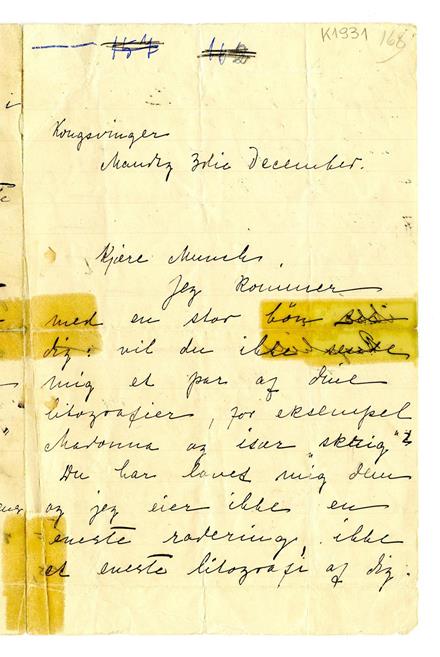 K1931 168
Kongsvinger
Mandag 3die December.
Kjære Munch,
Jeg kommer
med en stor bön
dig: vil du ikke sende
mig et par af dine
litografier, for eksempel
Madonna og især "skrig"?
Du har lovet mig dem
og jeg eier ikke en
eneste radering, ikke
et eneste litografi af dig.